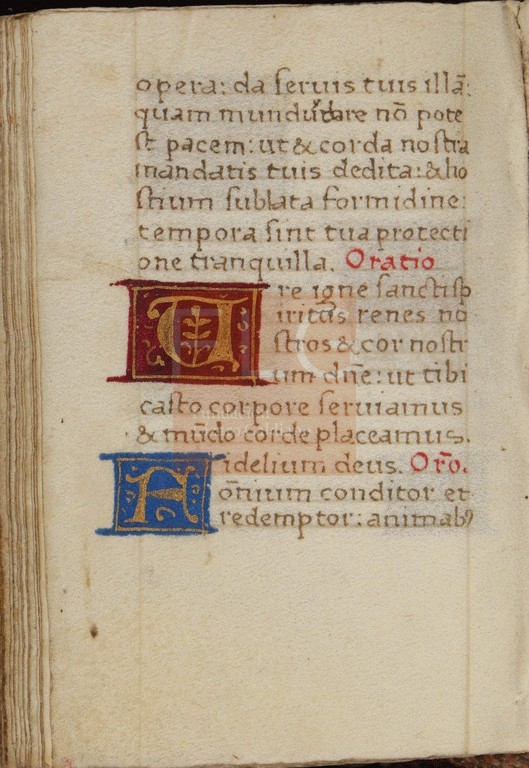 opera: da seruis tuis illā:
quam mundus dare nō pote
st pacem: ut & corda nostra
mandatis tuis dedita: & ho
stium sublata formidine:
tempora sint tua protecti
one tranquilla. Oratio
Ure igne sancti sp
iritus renes no
stros & cor nostr
um dñe: ut tibi
casto corpore seruiamus
& mūdo corde placeamus.
Fidelium deus. Orō.
ōnium conditor et
redemptor: animabꝰ